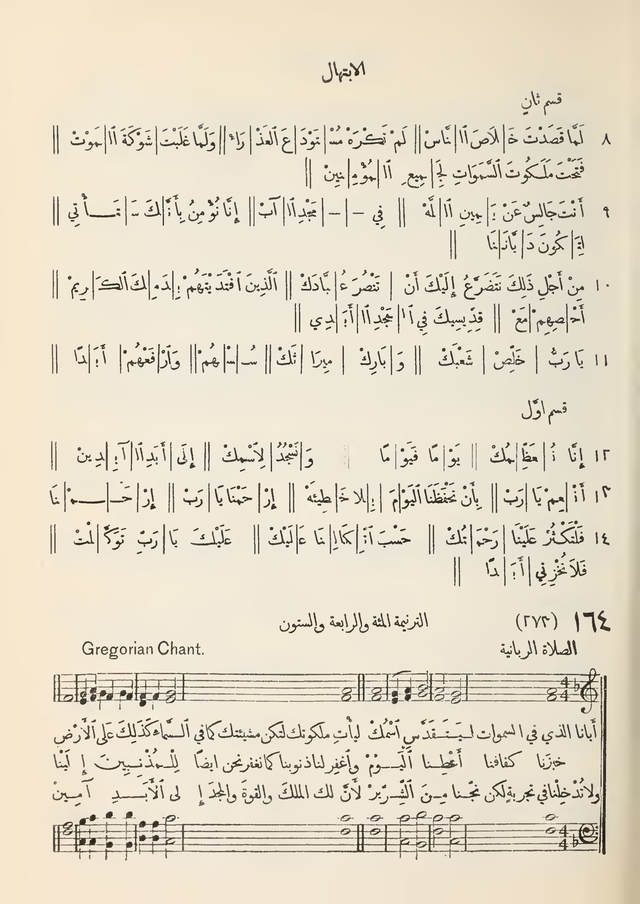 الابتهال
قسم ثانٍ
٨ لَمَّا قَصَدْتَ خَ|لَاصَ ٱل|نَّاسْ|| لَمْ تَكْرَهْ مُسْ|تَوْدَ|عَ ٱلعَذْ|رَاءْ|| وَلَمَّا غَلَبْتَ شَوْكَةَ ٱل|مَوْتْ ||
فَتَحْتَ مَلَكُوتَ ٱلسَّمَوَاتِ لِجَ|مِيعِ ٱلْ|مُؤْ|مِنِينْ ||
٩ أَنْتَ جَالِسٌ عَنْ يَ|مِينِ ٱل|لّٰهْ || فِي -|-|مَجْدِ ٱل|آبْ || إِنَّا نُؤْ|مِنُ بِأَنَّ|كَ سَ|تَـ|ـأْتِي ||
لِتَ|كُونَ دَ|يَّانَ|نَا ||
١٠ مِنْ أَجْلِ ذَلِكَ نَتَضَرَّعُ إِلَيْكَ أَنْ | تَنْصُرَ عُ|بَّادَكَ || ٱلَّذِينَ ٱفْتَدَيْتَهُمْ بِ|دَمِ|كَ ٱلكَ|رِيمْ ||
أَحْ|صِهِمْ مَعْ || قِدِّيسِيكَ فِي ٱلْ|مَجْدِ ٱلْ|أَ|بَدِي ||
١١ يَا رَبُّ | خَلِّصْ | شَعْبَكْ || وَ|بَارِكْ | مِيرَا|ثَكْ || سُـ|ـسْ|هُمْ|| وَٱرْ|فَعْهُمْ | أَ|بَ|دًا ||
قسم اوَّل
١٢ إِنَّا نُ|عَظِّ|مُكْ || يَوْ|مًا فَيَوْ|مًا وَ|نَسْجُدُ | لِٱسْمِكْ || إِلَى | أَبَدِ ٱل|آ|بِدِينْ ||
١٣ أَنْ|عِمْ يَا رَبْ || بِأَنْ تَحْفَظَنَا ٱليَوْمَ | بِلَا خَ|طِيئَهْ || إِرْ|حَمْنَا يَا | رَبْ || إِرْ|حَـ|ـمْـ|ـنَا ||
١٤ فَلْتَكْثُرْ عَلَيْنَا | رَحْمَ|تُكْ || حَسْبَ ٱتِّ|كَالِ|نَا عَ|لَيْكْ || عَلَيْكَ يَا | رَبِّ تَوَكَّ|لْتْ ||
فَلَا نُخْزَ فِي | أَ|بَ|دًا ||
١٦٤ (٢٧٣) الترنيمة المئة والرابعة والستون
الصلاة الربانية Gregorian Chant.
أبانا الذي في السموات ليَتَقدَّس ٱسْمُكْ ليأتِ ملكوتك لتكن مشيئتك كما في السَّماء كَذَلِكَ على ٱلأَرْض
خبزنا كفافنا أَعْطِنا ٱليَوْمْ وٱغفر لنا ذنوبنا كما نغفر نحن ايضًا لِلْمُذْنِبِينَ إِلَيْنا
ولا تُدْخِلنا في تجربة لكن نجّنا مِنَ الشِّرِّيرْ لأنَّ لك الملكَ والقوة والمجدَ إلى الأَبَدِ آمِينْ